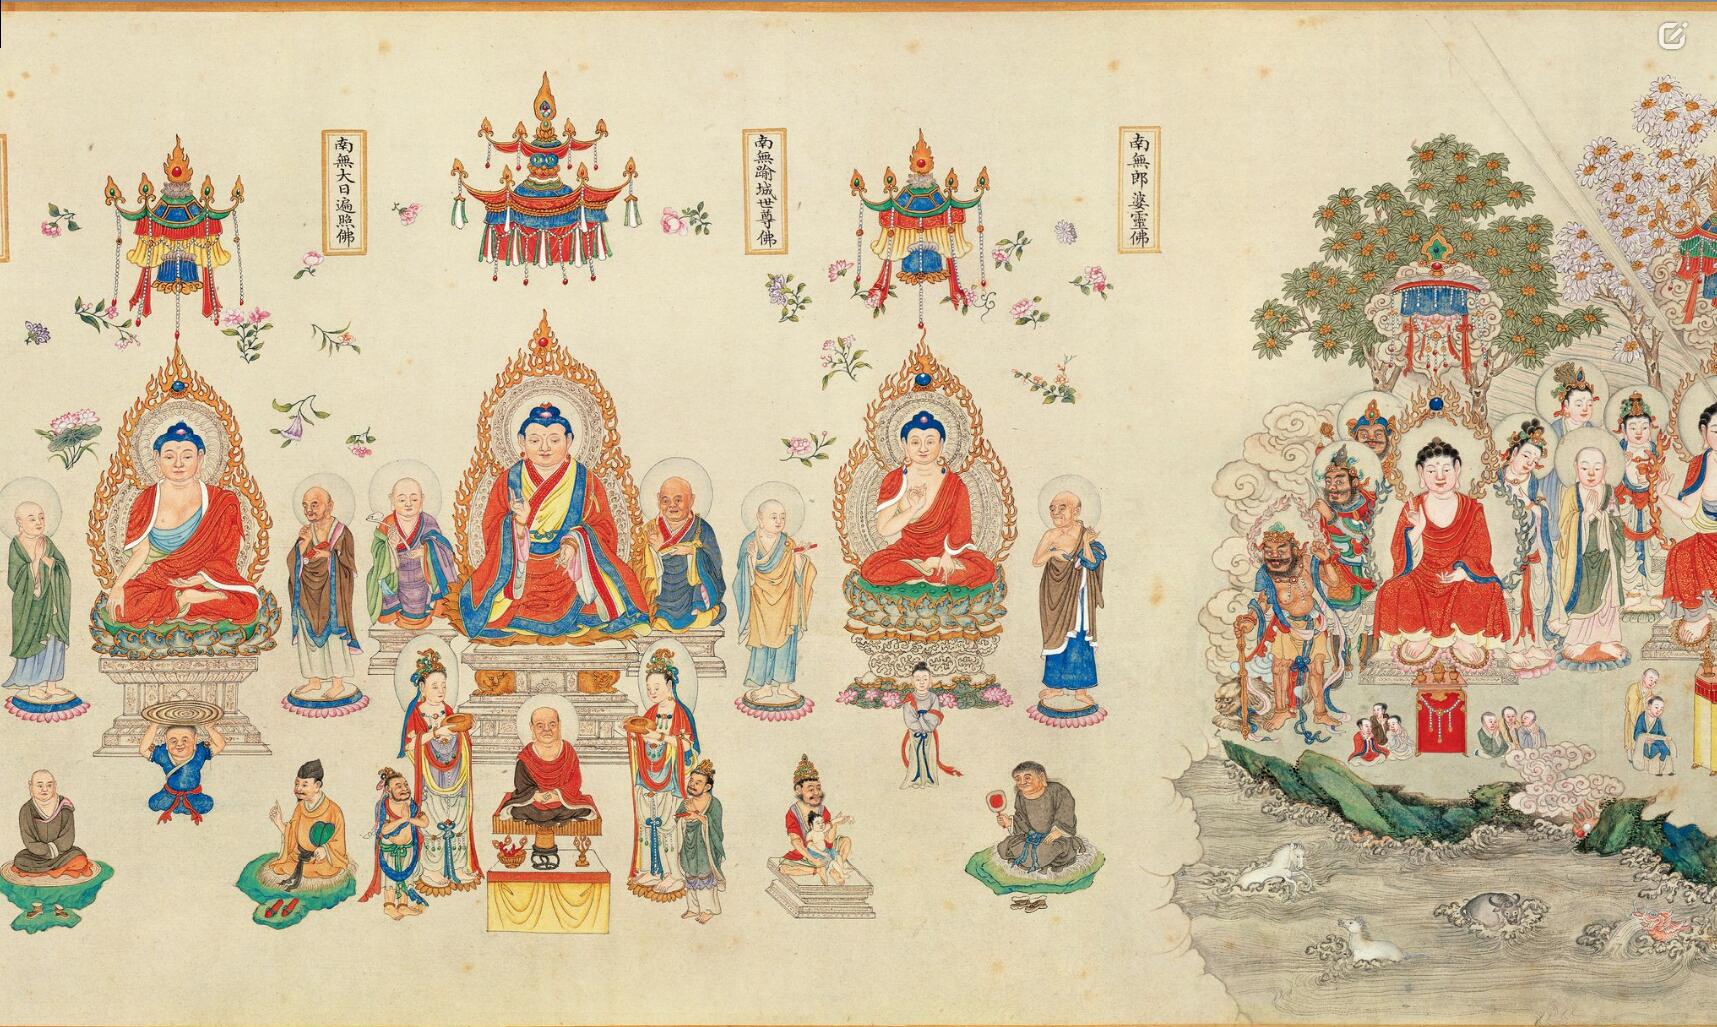 南無郎婆靈佛
南無踰城世尊佛
南無大日遍照佛